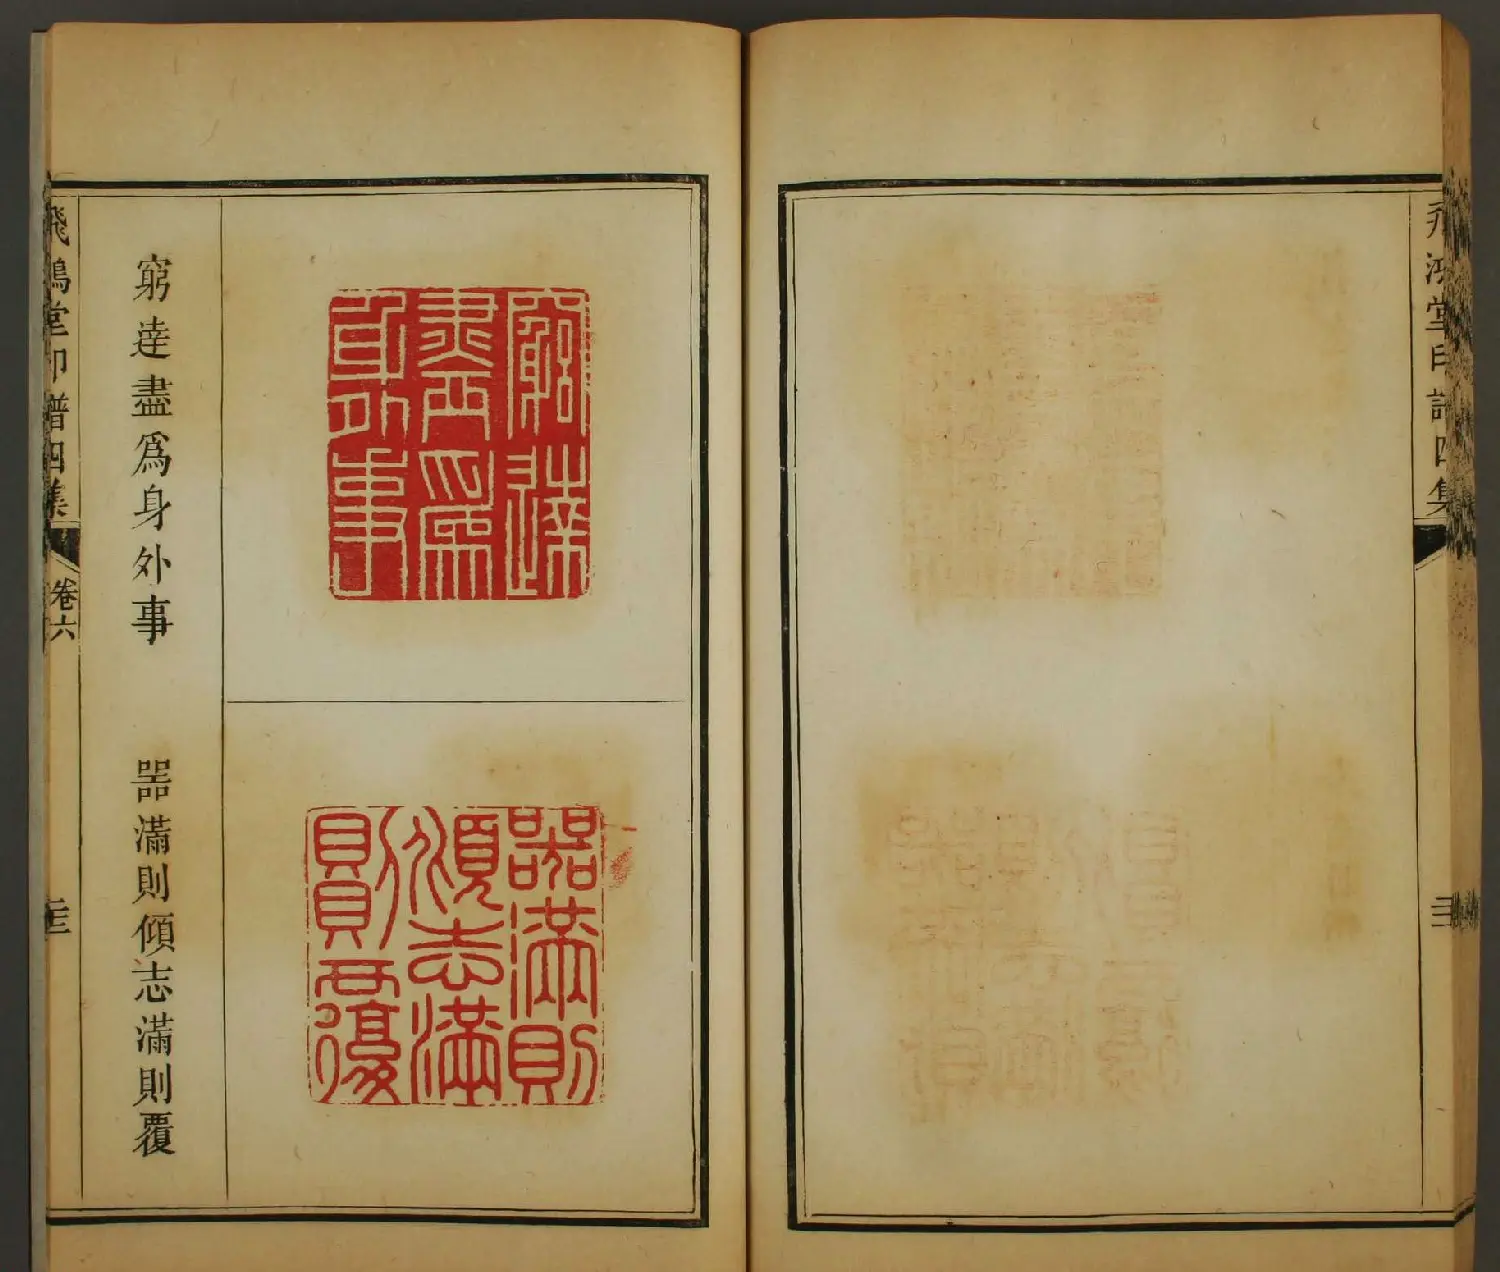 飛鴻堂印譜四集
窮達盡爲身外事
器滿則傾志滿則覆
窮達盡爲身外事
噐滿則傾志滿則覆
飛鴻堂印譜四集
卷六